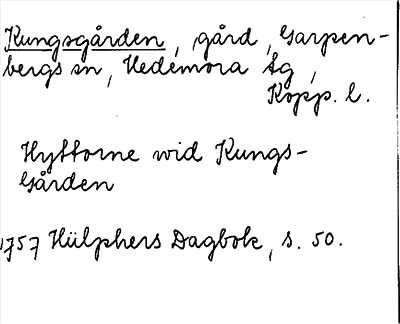 Kungsgården, gård, Garpen-
bergs sn, Hedemora tg,
Kopp. l.
Hyttorne wid Kungs-
Gården
1757 Hülphers Dagbok, s. 50.